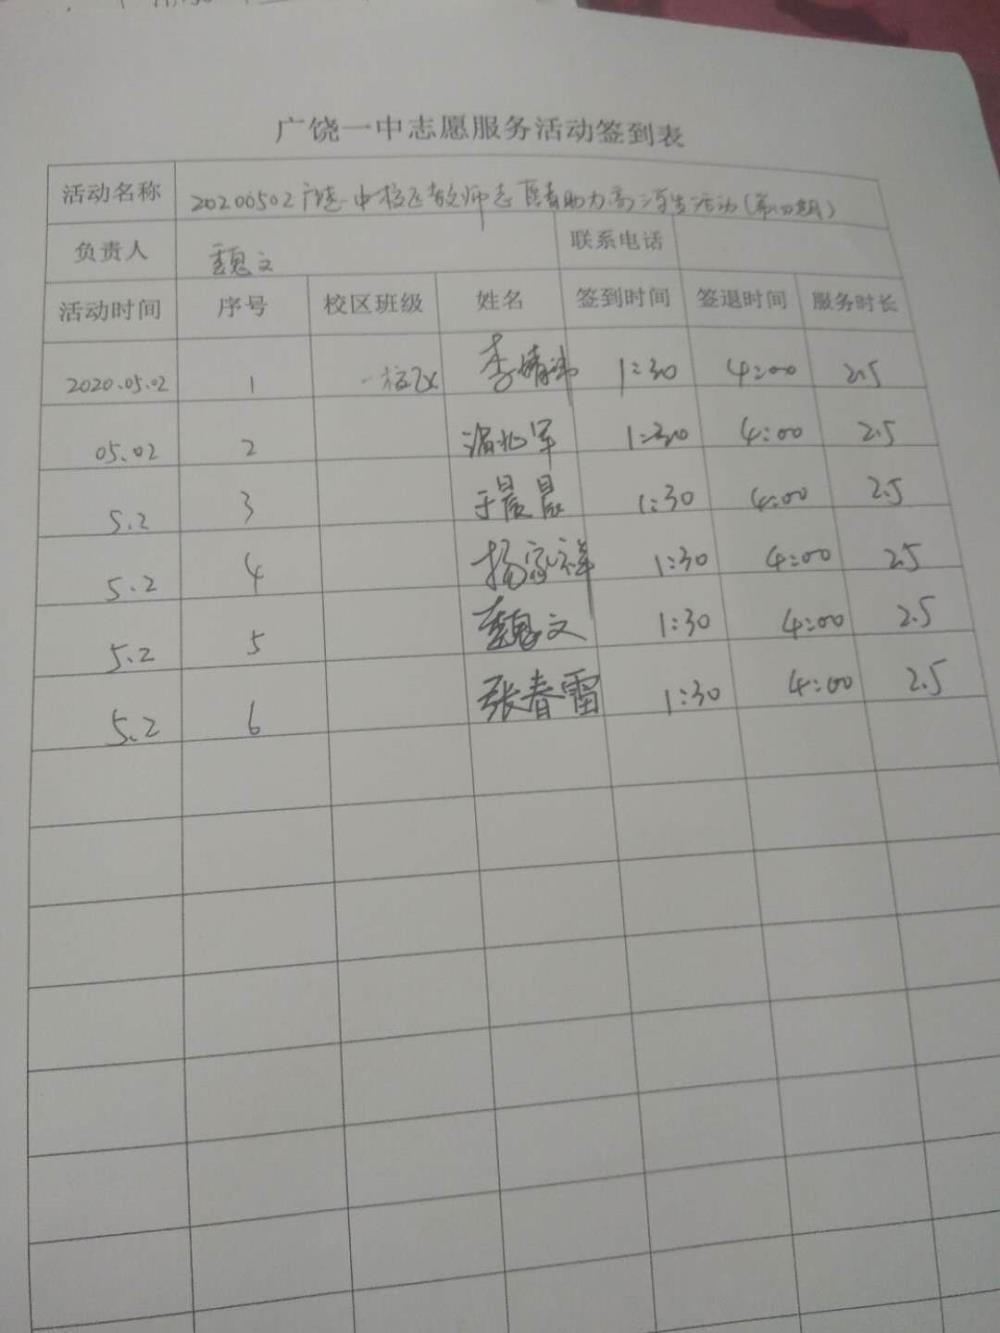 广饶一中志愿服务活动签到表
活动名称 20200502广饶一中校区教师志愿者助力高三学生活动(第四期)
负责人 魏文 联系电话
活动时间 序号 校区班级 姓名 签到时间 签退时间 服务时长
2020.05.02 1 一校区 李 1:30 4:00 2.5
05.02 2 1:30 4:00 2.5
5.2 3 于晨晨 1:30 4:00 2.5
5.2 4 杨家祥 1:30 4:00 2.5
5.2 5 魏文 1:30 4:00 2.5
5.2 6 张春雷 1:30 4:00 2.5